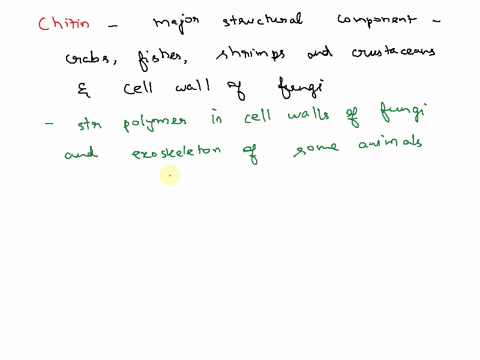 Chitin - major structural component -
crabs, fishes, shrimps and crustaceans
& cell wall of fungi
- str polymer in cell walls of fungi
and exoskeleton of some animals